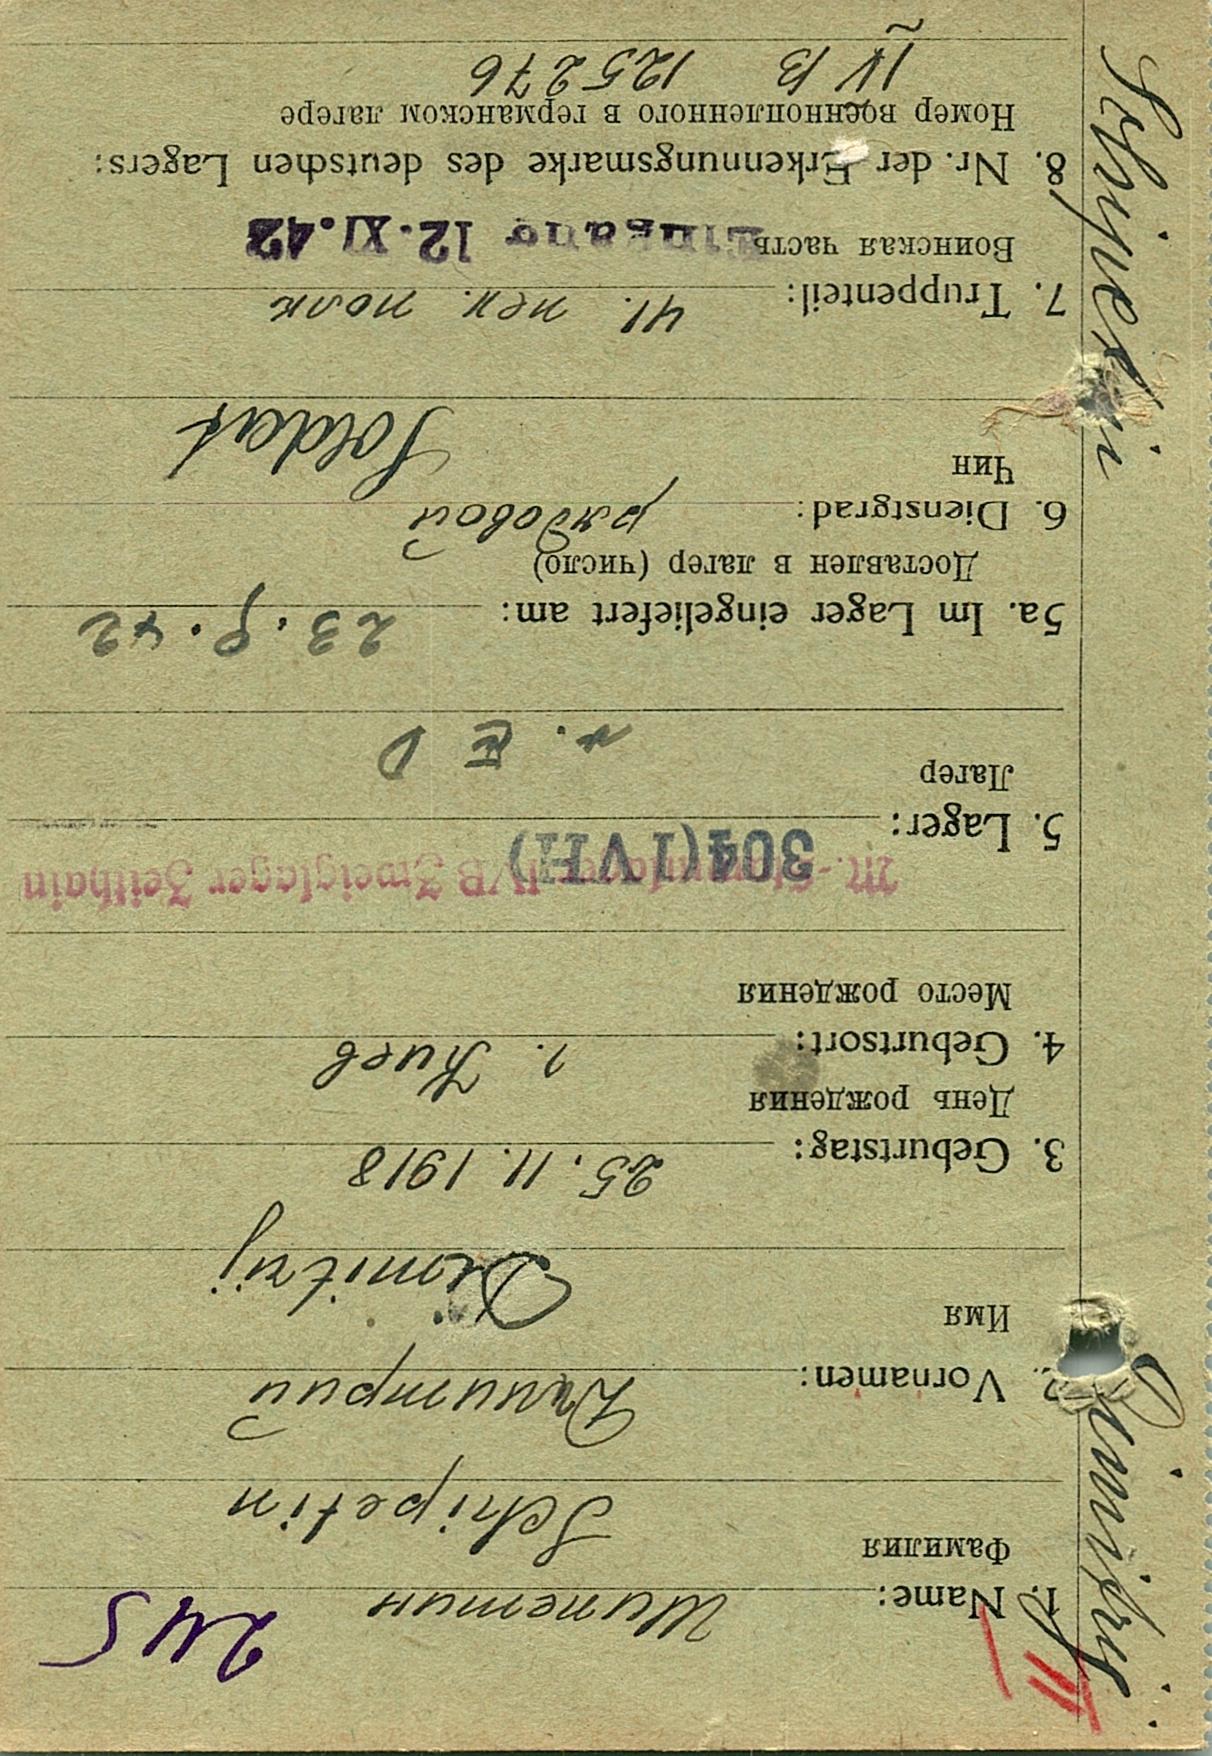 245
II
1. Name: Шипетин
Фамилия
Schipetin
2. Vornamen: Дмитрий
Имя
Dimitrij
3. Geburtstag: 25. 11. 1918
День рождения
4. Geburtsort: г. Киев
Место рождения
M.-Stammlager IVB Zweiglager Zeithain
304(IVH)
5. Lager:
Лагер
5a. Im Lager eingeliefert am: 23. 9. 42
Доставлен в лагер (число)
6. Dienstgrad: рядовой
Чин
Soldat
7. Truppenteil: 41. пех. полк
Воинская часть Eingang 12. XI. 42
8. Nr. der Erkennungsmarke des deutschen Lagers:
Номер военнопленного в германском лагере
IV B 125276
Schipetin Dimitrij